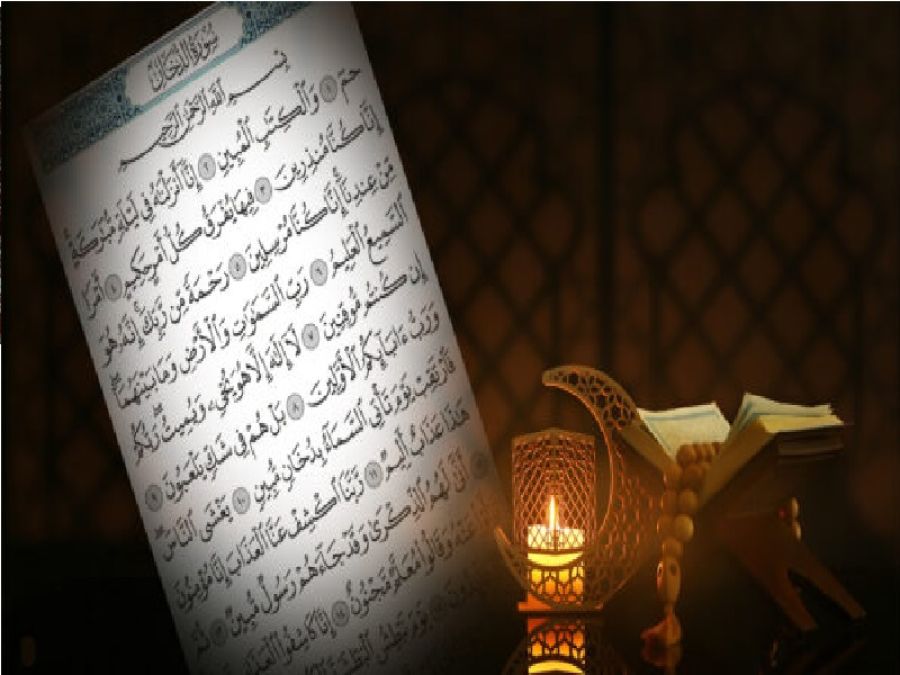 سُورَةُ الدُّخَانِ
بِسْمِ ٱللَّهِ ٱلرَّحْمَٰنِ ٱلرَّحِيمِ
حمٓ ١ وَٱلْكِتَٰبِ ٱلْمُبِينِ ٢ إِنَّآ أَنزَلْنَٰهُ فِى لَيْلَةٍ مُّبَٰرَكَةٍ
إِنَّا كُنَّا مُنذِرِينَ ٣ فِيهَا يُفْرَقُ كُلُّ أَمْرٍ حَكِيمٍ ٤ أَمْرًا
مِّنْ عِندِنَآ إِنَّا كُنَّا مُرْسِلِينَ ٥ رَحْمَةً مِّن رَّبِّكَ إِنَّهُۥ هُوَ
ٱلسَّمِيعُ ٱلْعَلِيمُ ٦ رَبِّ ٱلسَّمَٰوَٰتِ وَٱلْأَرْضِ وَمَا بَيْنَهُمَآ
إِن كُنتُم مُّوقِنِينَ ٧ لَآ إِلَٰهَ إِلَّا هُوَ يُحْىِۦ وَيُمِيتُ رَبُّكُمْ
وَرَبُّ ءَابَآئِكُمُ ٱلْأَوَّلِينَ ٨ بَلْ هُمْ فِى شَكٍّ يَلْعَبُونَ ٩
فَٱرْتَقِبْ يَوْمَ تَأْتِى ٱلسَّمَآءُ بِدُخَانٍ مُّبِينٍ ١٠ يَغْشَى ٱلنَّاسَ
هَٰذَا عَذَابٌ أَلِيمٌ ١١ رَّبَّنَا ٱكْشِفْ عَنَّا ٱلْعَذَابَ إِنَّا مُؤْمِنُونَ
أَنَّىٰ لَهُمُ ٱلذِّكْرَىٰ وَقَدْ جَآءَهُمْ رَسُولٌ مُّبِينٌ ١٣ ثُمَّ
عَنْهُ وَقَالُوا۟ مُعَلَّمٌ مَّجْنُونٌ ١٤ إِنَّا كَاشِفُوا۟ ٱلْعَذَابِ
يَوْمَ نَبْطِشُ ٱلْبَطْشَةَ